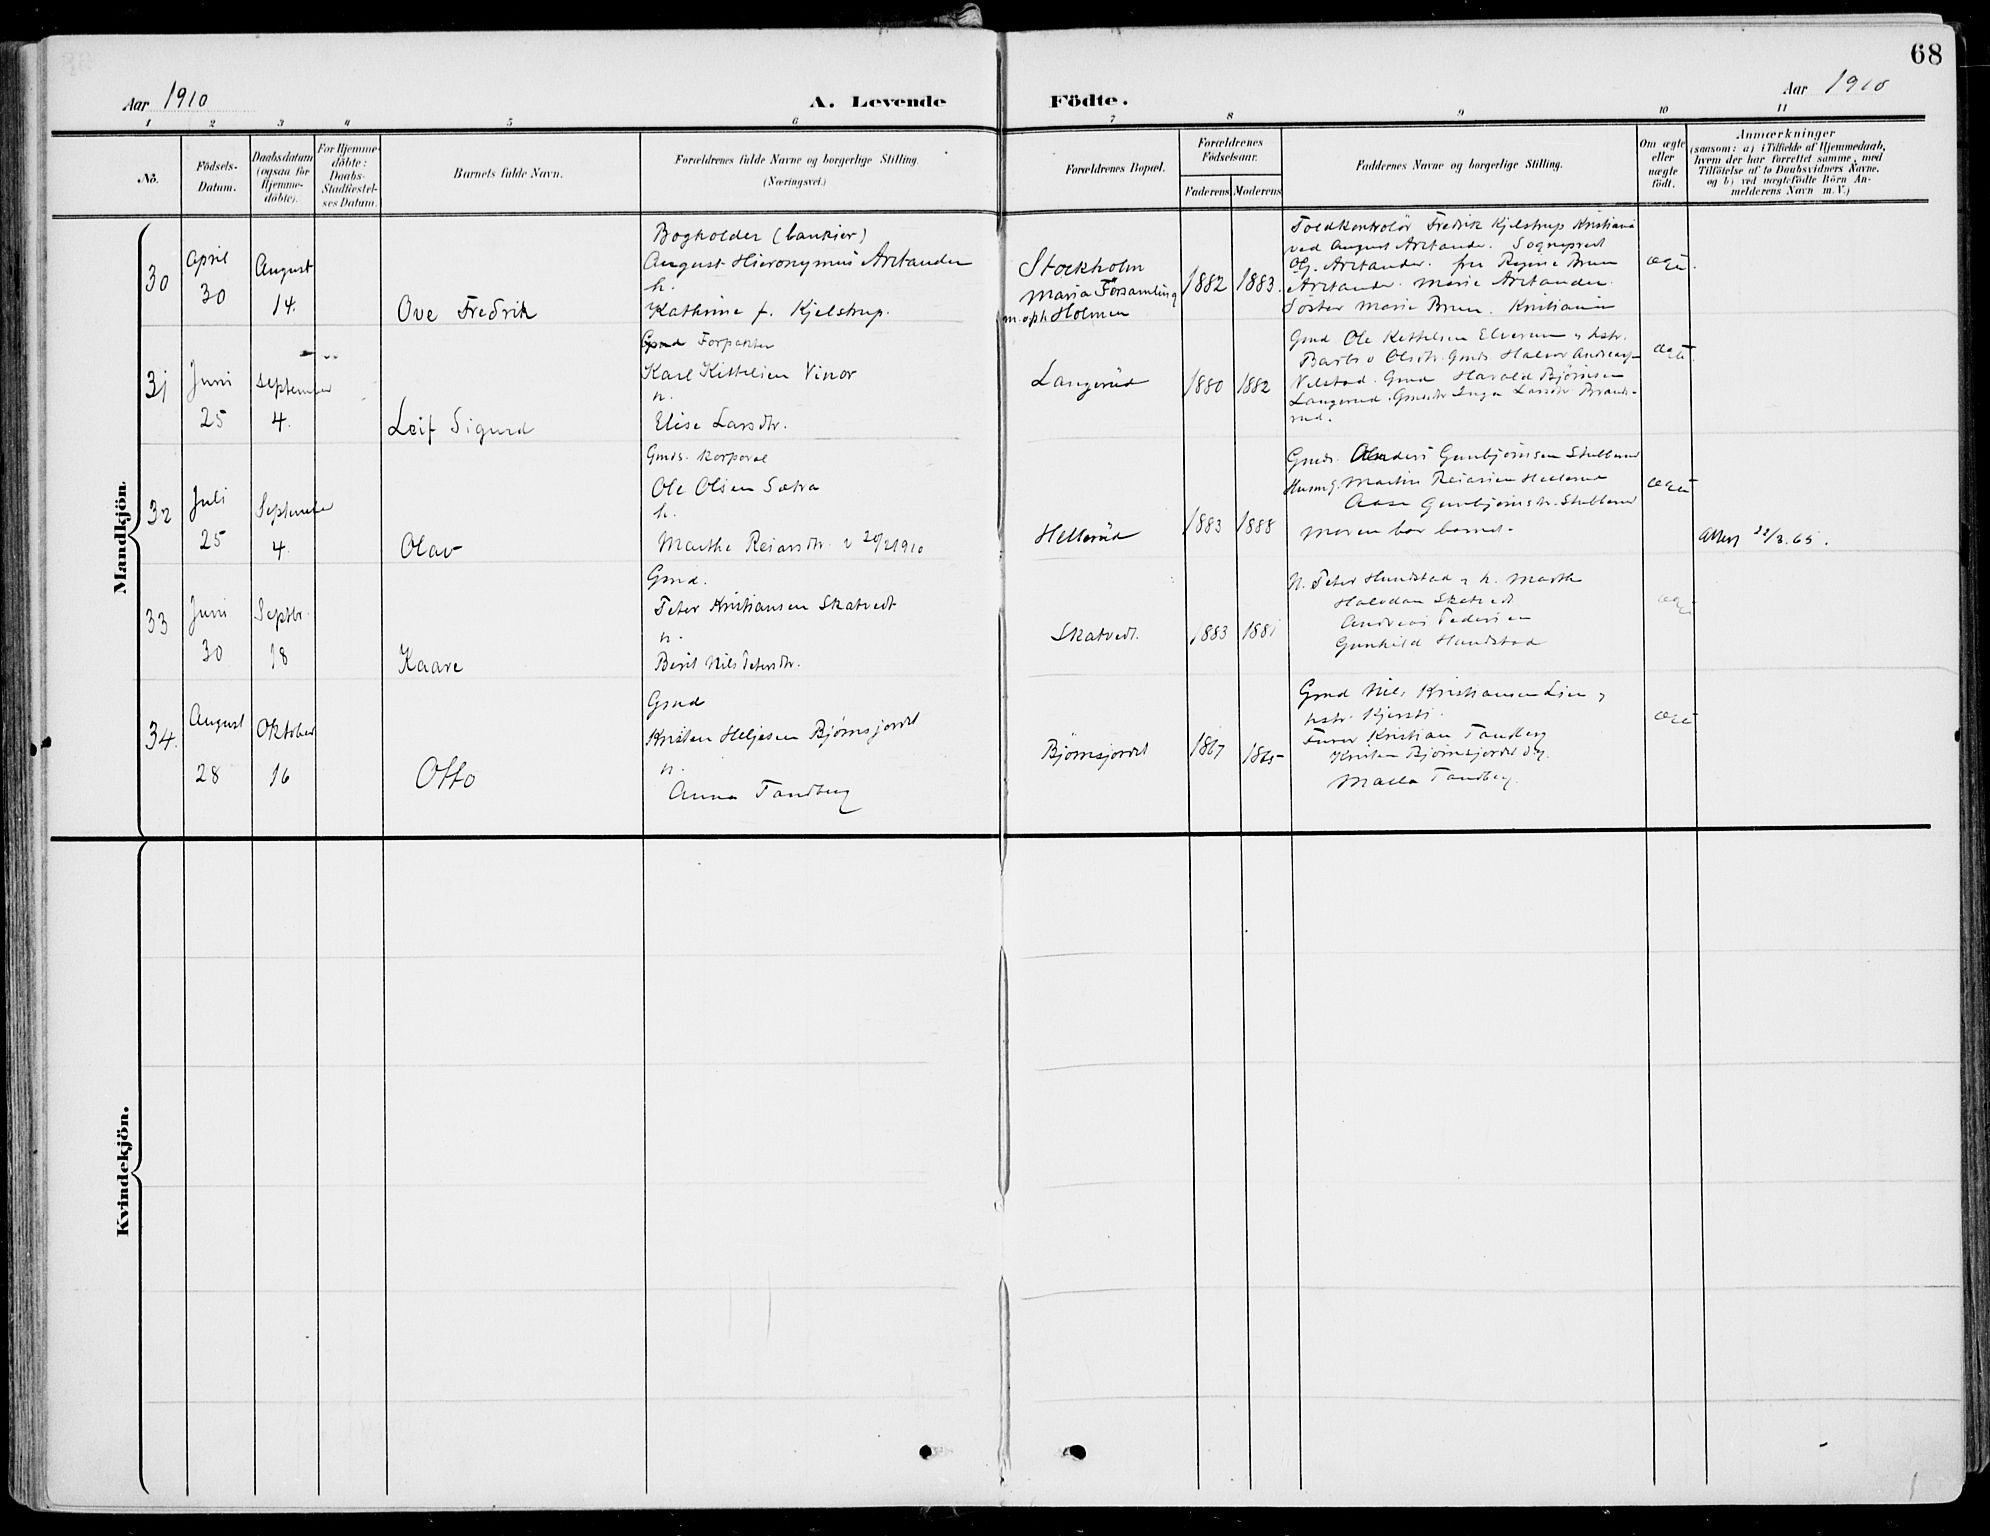 68
Aar 1910
A. Levende
Födte.
Aar 1910
1 2 3 4 5 6 7 8 9 10 11
No.
Födsels-
Datum.
Daabsdatum
(ogsaa for
Hjemme-
döbte).
For Hjemme-
döbte:
Daabs-
Stadfæstel-
ses Datum.
Barnets fulde Navn.
Forældrenes fulde Navne og borgerlige Stilling.
(Næringsvei.)
Forældrenes Bopæl.
Forældrenes
Födselsaar.
Faderens
Moderens
Faddernes Navne og borgerlige Stilling.
Om ægte
eller
uægte
födt.
Anmærkninger
(saasom: a) i Tilfælde af Hjemmedaab,
hvem der har forrettet samme, med
Tilföielse af to Daabsvidners Navne,
og b) ved uægtefödte Börn An-
melderens Navn m. V.)
Mandkjön.
30
April
30
August
14.
Ove Fredrik
Bogholder (bankier)
August Hieronymus Arctander
h.
Kathrine f. Kjelstrup.
Stockholm
Maria Församling
m. oph Holmen
1882
1883.
Toldkontrolör Fredrik Kjelstrup Kristiania
ved August Arctander. Sogneprest
Arctander. fru Regine Brun
Arctander. Marie Arctander.
Söster Marie Brun. Kristiania
ægte.
31
Juni
25
September
4.
Leif Sigurd
Forpakter
Karl Kittelsen Vinor
h.
Elise Larsdtr.
Langerud
1880
1882
Gmd Ole Kittelsen Elverum
Halvor Andreas
Velstad. Gmd Harald Björnsen
Langerud. Inga Larsdtr Brand-
rud.
ægte.
32
Juli
25
September
4.
Olav
Gmds. Korporal
Ole Olsen Sætra
h.
Marthe Reiarsdtr. 1910
Hellerud
1883
1888
Gmds. Gunbjörnsen Stubberud
Martin Reiarsen Hellerud
Aase Gunbjörnsdtr. Stubberud
moren bar barnet.
ægte
Attest 22/3.65.
33
Juni
30
Septbr.
18
Kaare
Gmd.
Peter Kristiansen Skatvedt
h.
Berit Nils Petersdtr.
Skatvedt.
1883
1881
N. Peter Hundstad h. Marth
Halvdan Skatvedt
Andreas Pedersen
Gunhild Hundstad
ægte
34.
August
28
Oktober
16
Otto
Gmd
Kristen Helgesen Björnsjordet
h.
Anna Tandberg
Björnsjordet
1867
1865
Gmd Nils Kristiansen Lien
hstr. Kjersti.
Kristian Tandberg
Kristen Björnsjordet
Tandberg.
ægte
Kvindekjön.